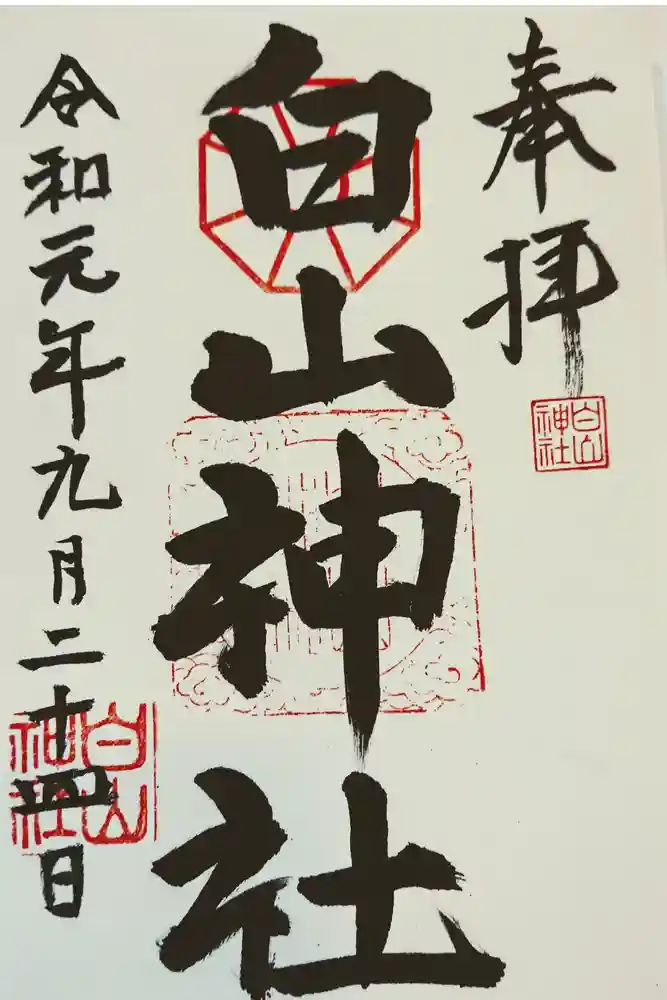 奉拝
白山
神社
白山神社
令和元年九月二十四日
白山
神社